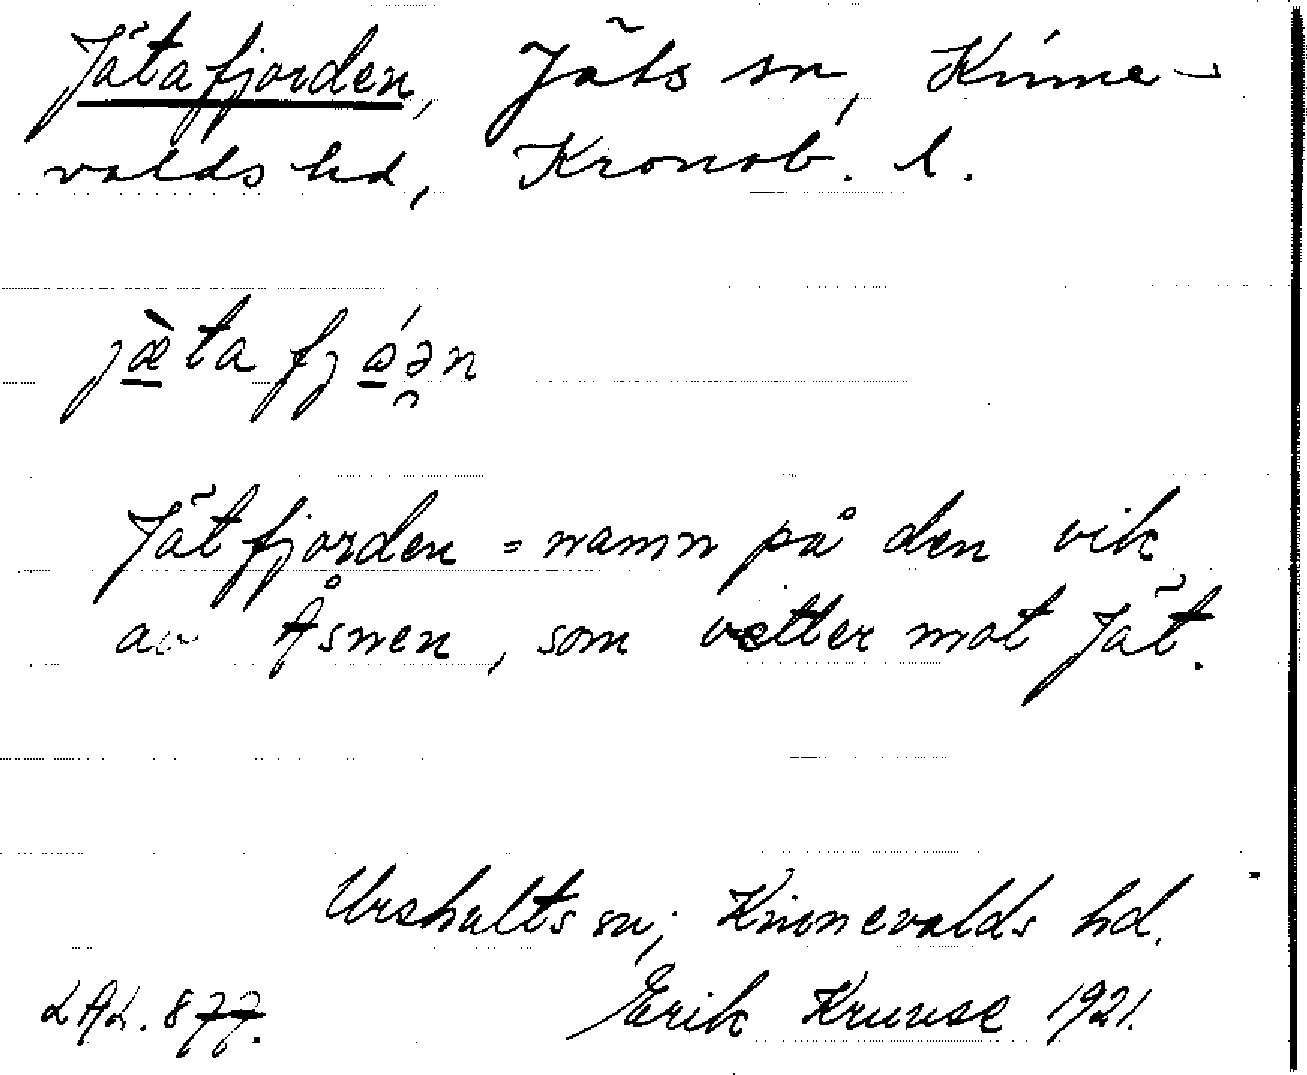 Jätafjorden, Jäts sn, Kinne-
valds hd, Kronob. l.
jæ̀ta fjáən
Jätfjorden = namn på den vik
av Åsnen, som vetter mot Jät.
Urshults sn, Kinnevalds hd.
LAL. 877. Erik Kruuse 1921.